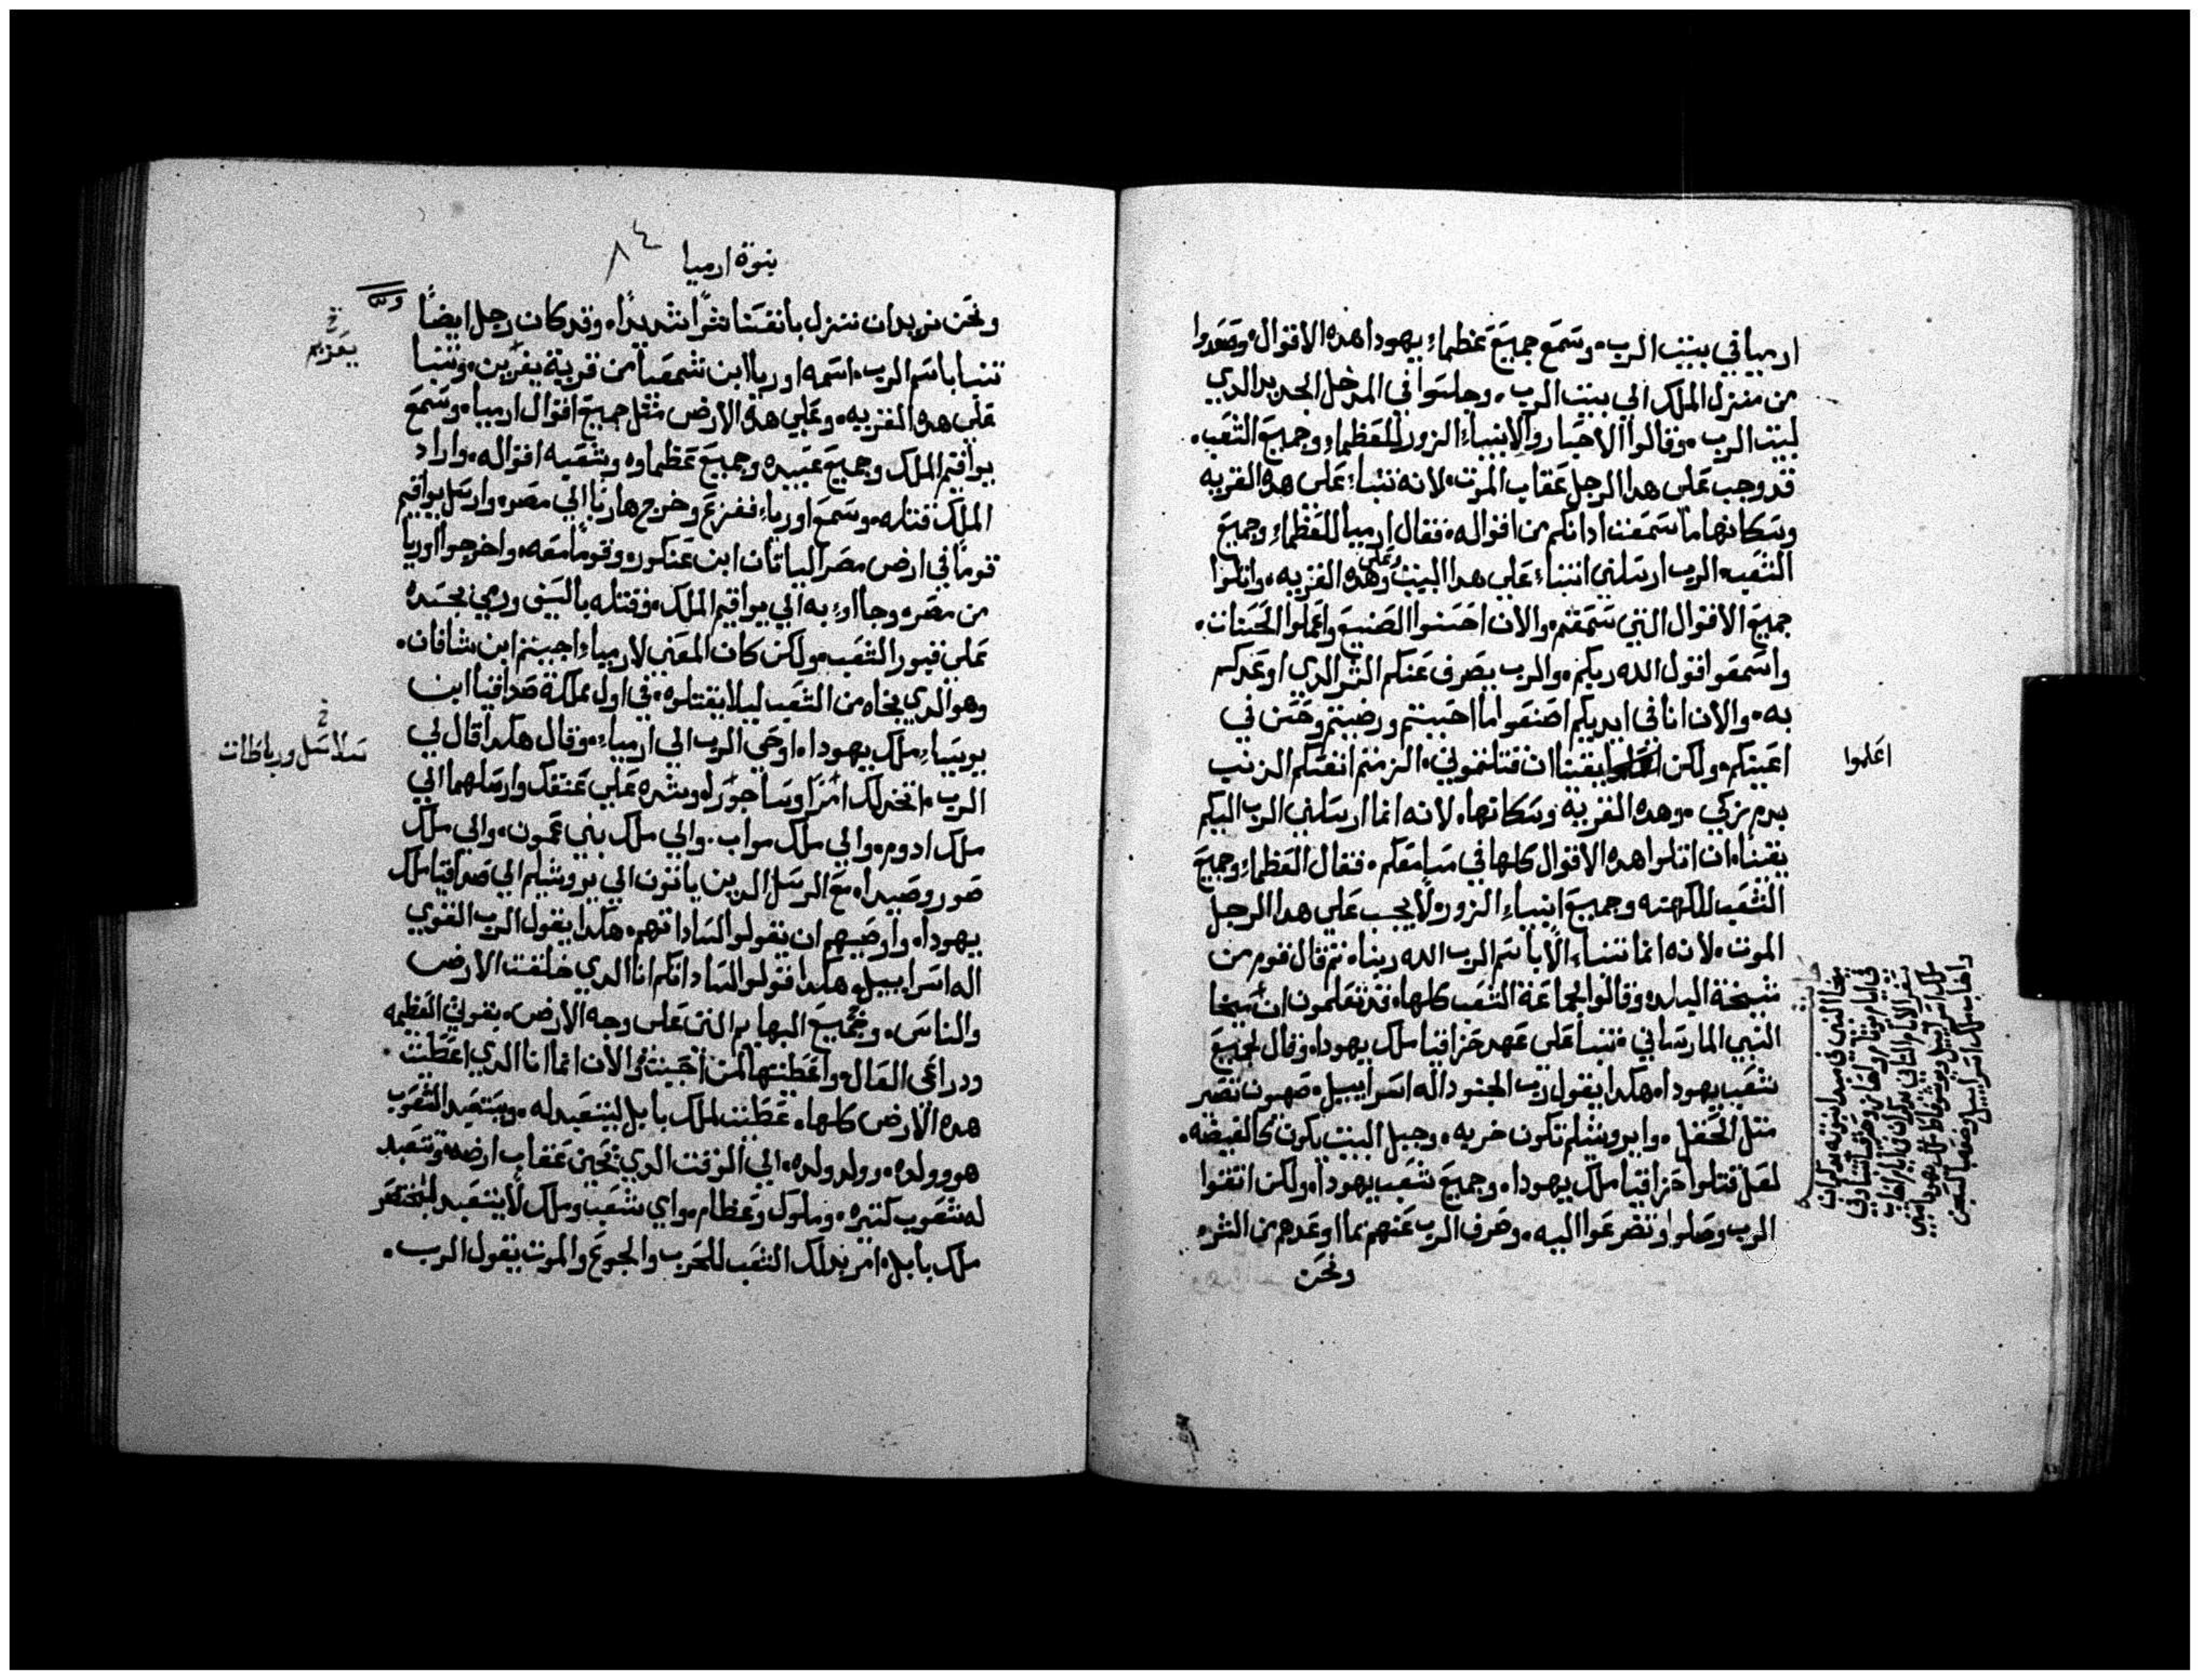 ارميا في بيت الرب. وسَمع جميعَ عَظماءِ يهودا هده الاقوال. وصَعدوا
من منزل الملك الي بيت الرب. وجلسَوا في المدخل الجديد الدي
لبيت الرب. وقالوا الاحبار والانبياءِ الزور للعَظماءِ وجميعَ الشعَب.
قد وجب عَلى هدا الرجل عَقاب الموت. لانه تنباءَ عَلى هده القريه
وسَكانها ما سَمعَت ادانكم من اقواله. فقال ارميا للعَظماءِ وجميعَ
الشعَب. الرب ارسَلني اتنباءَ عَلي هدا البيت وعَلى هده القريه. واتلوا
جميعَ الاقوال التي سَمعَتم. والان احسَنوا الصَنيعَ واعَملوا الحَسَنات.
واسَمعَوا قول الله ربكم. والرب يصَرف عَنكم الشر الدي اوعَدكم
به. والان انا في ايديكم اصَنعَوا ما احَببتم ورضيتم وحَسَن في
اعَينكم. ولكن يقينا ان قتلتموني. الزمتم انفسَكم الدنب
بدم زكي. وهده القريه وسَكانها. لانه انما ارسَلني الرب اليكم
يقينا. ان اتلوا هده الاقوال كلها في مسَامعَكم. فقال العَظماءِ وجميعَ
الشعَب للكهنه وجميعَ انبياءِ الزور. لا يجب عَلي هدا الرجل
الموت. لانه انما تنباءَ الا باسَم الرب الله ربنا. تم قال قوم من
شيخة البلد. وقالوا لجماعَة الشعَب كلها. قد تعَلمون ان ميخا
النبي المارسَاني. تنبا عَلى عَهد حَزاقيا ملك يهودا. وقال لجميعَ
شعَب يهودا. هكدا يقول رب الجنود اله اسَراييل. صَهيون تصَير
متل الحَقل. وايروشلم تكون خربه. وجبل البيت يكون كالغيضه.
لعَل قتلوا حَزاقيا ملك يهودا. وجميعَ شعَب يهودا. ولكن اتقوا
الرب وصَلوا وتضرعَوا اليه. وصَرف الرب عَنهم ما اوعَدهم من الشر.
ونحَن
اعَلموا
نبوة ارميا
٨٤
ونحَن نريد ان ننزل بانفسَنا شرًا شديدًا. وقد كان رجل ايضًا
تنبا باسَم الرب. اسَمه اوريا ابن شمعَيا من قرية يعَرين. وتنبا
عَلى هده القريه. وعَلي هدة الارض متل جميعَ اقوال ارميا. وسَمعَ
يواقيم الملك وجميعَ عَبيده وجميعَ عَظماوه وشعَبه اقواله. واراد
الملك قتله. وسَمعَ اورياءَ. ففزعَ وخرج هاربا الي مصَر. وارسَل يواقيم
قومًا في ارض مصَر الياتان ابن عَنكور. وقومًا معَه. واخرجوا اوريا
من مصَر. وجااوءِ به الي يواقيم الملك. وقتله بالسَيف ورمي بجسَده
عَلي قبور الشعَب. ولكن كان المعَني لارمياءَ. اجيتم ابن شافان.
وهو الدي نجاه من الشعَب ليلا يقتلوه. في اول مملكة صَداقيا ابن
يوسَياءِ ملك يهودا. اوحَي الرب الي ارمياءَ. وقال هكدا قال لي
الرب. اتخد لك امَرًا وسَاجورًا. وشده عَلي عَنقك وارسَلهما الي
ملك ادوم. والي ملك مواب. والي ملك بني عَمون. والي ملك
صَور وصَيدا. معَ الرسَل الدين ياتون الي يروشليم الي صَداقيا ملك
يهودا. واوصَيهم ان يقولوا لسَاداتهم. هكدا يقول الرب القوي
اله اسَراييل. هكدا قولوا لسَاداتكم انا الدي خلقت الارض
والناسَ. وجميعَ البهايم التي عَلى وجه الارض. بقوتي العَظيمه
ودراعَي العَال. واعَطيتها لمن احَببت. والان انما انا الدي اعَطيت
هده الارض كلها. عَطيت لملك بابل ليتعَبد له. ويتعَبد الشعَوب
هو وولده. وولد ولده. الي الوقت الدي يحَين عَقاب ارضه. وتتعَبد
له شعَوب كتيره. وملوك وعَظام. واي شعَب وملك لا يتعَبد لبختنصَر
ملك بابل. امر بدلك الشعَب للحَرب والجوعَ والموت يقول الرب.
يعَزيم
سَلاسَل ورباطات